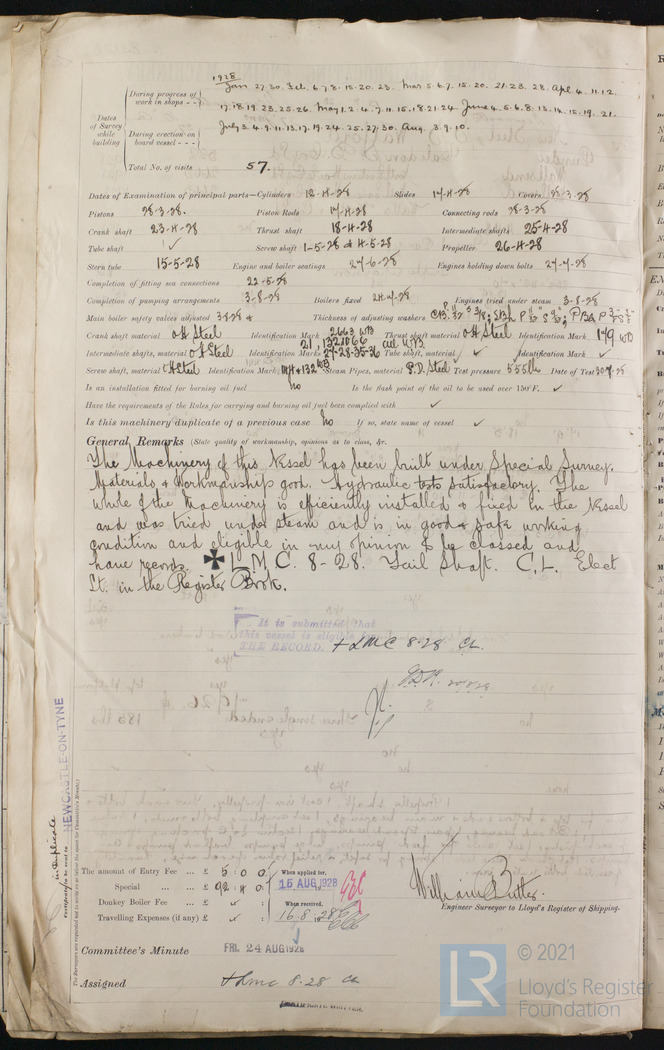 1928
Jan 27.30. Feb. 6.7.8.15.20.23. Mar 5.6.7.15.20.21.23.28. Apl 4.11.12.
During progress of work in shops - -
17.18.19.23.25.26. May 1.2.4.7.11.15.18.21.24 June 4.5.6.8.13.14.15.19.21.
Dates of Survey while building
During erection on board vessel - - -
July 3.4.9.11.13.17.19.24.25.27.30. Aug. 3.9.10.
Total No. of visits 57.
Dates of Examination of principal parts—Cylinders 12-4-28 Slides 17-4-28 Covers 28-3-28
Pistons 28-3-28. Piston Rods 17-4-28 Connecting rods 28-3-28
Crank shaft 23-4-28 Thrust shaft 18-4-28 Intermediate shafts 25-4-28
Tube shaft ✓ Screw shaft 1-5-28 & 4-5-28 Propeller 26-4-28
Stern tube 15-5-28 Engine and boiler seatings 27-6-28 Engines holding down bolts 27-7-28
Completion of fitting sea connections 22-5-28
Completion of pumping arrangements 3-8-28 Boilers fixed 24-7-28 Engines tried under steam 3-8-28
Main boiler safety valves adjusted 3-8-28 Thickness of adjusting washers
Crank shaft material O H Steel Identification Mark 2663 WB Thrust shaft material O H Steel Identification Mark 179 WB
Intermediate shafts, material O H Steel Identification Marks 21, 132, 1066 27-28-35-36 all WB Tube shaft, material ✓ Identification Mark ✓
Screw shaft, material O H Steel Identification Mark Steam Pipes, material S.D. Steel Test pressure 555 lbs Date of Test 30-7-28
Is an installation fitted for burning oil fuel no Is the flash point of the oil to be used over 150°F. ✓
Have the requirements of the Rules for carrying and burning oil fuel been complied with ✓
Is this machinery duplicate of a previous case no If so, state name of vessel ✓
General Remarks (State quality of workmanship, opinions as to class, &c.
The Machinery of this Vessel has been built under Special Survey.
Materials & Workmanship good. Hydraulic tests satisfactory. The
whole of the Machinery is efficiently installed & fixed in the Vessel
and was tried under steam and is in good & safe working
condition and eligible in my opinion to be classed and
have records. ✠ L.M.C. 8-28. Tail Shaft. C.L. Elect
Lt. in the Register Book.
It is submitted that
this vessel is eligible for
THE RECORD. + LMC 8.28 CL.
NEWCASTLE-ON-TYNE
in duplicate
The amount of Entry Fee ... £ 5 : 0 : 0
Special ... ... £ 92 : 4 : 0
Donkey Boiler Fee ... £ ✓ :
Travelling Expenses (if any) £ ✓ :
When applied for,
15 AUG 1928
When received,
16.8.1928
William Butler.
Engineer Surveyor to Lloyd's Register of Shipping.
Committee's Minute FRI. 24 AUG 1928
Assigned + LMC 8.28 CL
LR
© 2021
Lloyd's Register
Foundation